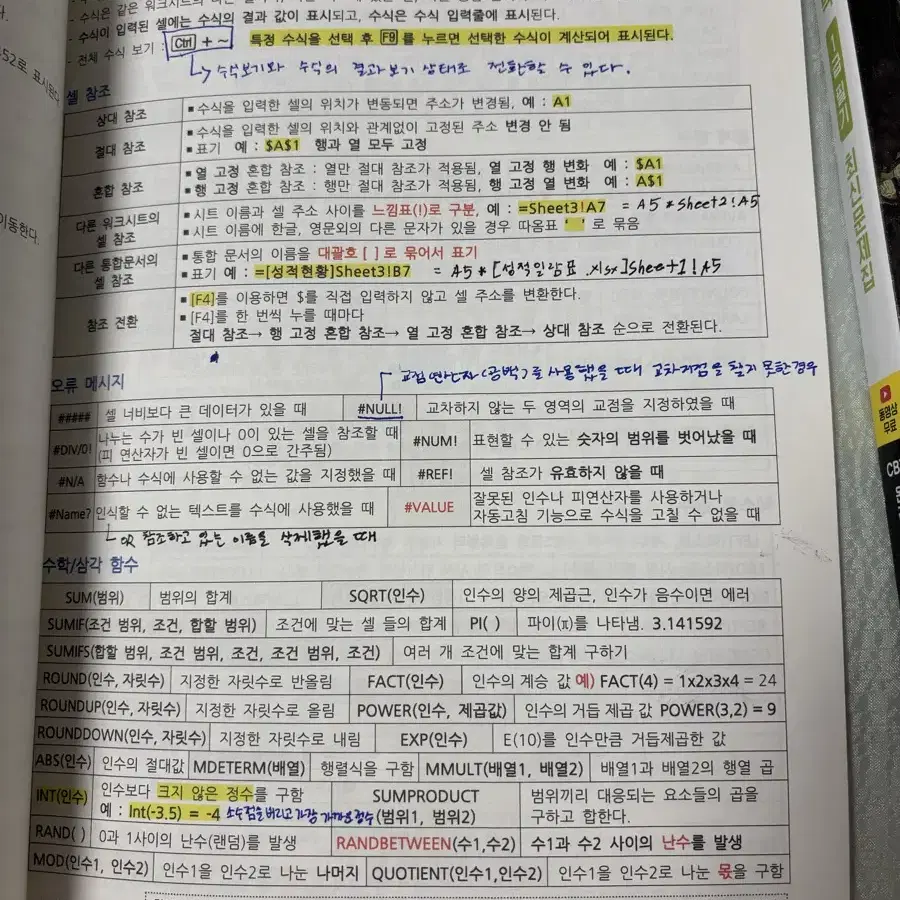 수식이 입력된 셀에는 수식의 결과 값이 표시되고, 수식은 수식 입력줄에 표시된다.
- 전체 수식 보기 : Ctrl + ~ 특정 수식을 선택 후 F9 를 누르면 선택한 수식이 계산되어 표시된다.
↳ 수식보기와 수식의 결과보기 상태로 전환할 수 있다.
셀 참조
상대 참조 ▪ 수식을 입력한 셀의 위치가 변동되면 주소가 변경됨, 예 : A1
절대 참조 ▪ 수식을 입력한 셀의 위치와 관계없이 고정된 주소 변경 안 됨
▪ 표기 예 : $A$1 행과 열 모두 고정
혼합 참조 ▪ 열 고정 혼합 참조 : 열만 절대 참조가 적용됨, 열 고정 행 변화 예 : $A1
▪ 행 고정 혼합 참조 : 행만 절대 참조가 적용됨, 행 고정 열 변화 예 : A$1
다른 워크시트의 셀 참조 ▪ 시트 이름과 셀 주소 사이를 느낌표(!)로 구분, 예 : =Sheet3!A7 = A5 * Sheet2!A5
▪ 시트 이름에 한글, 영문외의 다른 문자가 있을 경우 따옴표 ' ' 로 묶음
다른 통합문서의 셀 참조 ▪ 통합 문서의 이름을 대괄호 [ ] 로 묶어서 표기
▪ 표기 예 : =[성적현황]Sheet3!B7 = A5 * [성적일람표.xlsx]Sheet1!A5
참조 전환 ▪ [F4]를 이용하면 $를 직접 입력하지 않고 셀 주소를 변환한다.
▪ [F4]를 한 번씩 누를 때마다
절대 참조→ 행 고정 혼합 참조→ 열 고정 혼합 참조→ 상대 참조 순으로 전환된다.
교점 연산자(공백)를 사용했을 때 교차지점을 찾지 못한경우
오류 메시지
##### 셀 너비보다 큰 데이터가 있을 때 #NULL! 교차하지 않는 두 영역의 교점을 지정하였을 때
#DIV/0! 나누는 수가 빈 셀이나 0이 있는 셀을 참조할 때 (피 연산자가 빈 셀이면 0으로 간주됨) #NUM! 표현할 수 있는 숫자의 범위를 벗어났을 때
#N/A 함수나 수식에 사용할 수 없는 값을 지정했을 때 #REF! 셀 참조가 유효하지 않을 때
#Name? 인식할 수 없는 텍스트를 수식에 사용했을 때 #VALUE 잘못된 인수나 피연산자를 사용하거나
자동고침 기능으로 수식을 고칠 수 없을 때
↳ or 참조하고 있는 이름을 삭제했을 때
수학/삼각 함수
SUM(범위) 범위의 합계 SQRT(인수) 인수의 양의 제곱근, 인수가 음수이면 에러
SUMIF(조건 범위, 조건, 합할 범위) 조건에 맞는 셀 들의 합계 PI( ) 파이(π)를 나타냄. 3.141592
SUMIFS(합할 범위, 조건 범위, 조건, 조건 범위, 조건) 여러 개 조건에 맞는 합계 구하기
ROUND(인수, 자릿수) 지정한 자릿수로 반올림 FACT(인수) 인수의 계승 값 예) FACT(4) = 1x2x3x4 = 24
ROUNDUP(인수, 자릿수) 지정한 자릿수로 올림 POWER(인수, 제곱값) 인수의 거듭 제곱 값 POWER(3,2) = 9
ROUNDDOWN(인수, 자릿수) 지정한 자릿수로 내림 EXP(인수) E(10)를 인수만큼 거듭제곱한 값
ABS(인수) 인수의 절대값 MDETERM(배열) 행렬식을 구함 MMULT(배열1, 배열2) 배열1과 배열2의 행열 곱
INT(인수) 인수보다 크지 않은 정수를 구함 SUMPRODUCT 범위끼리 대응되는 요소들의 곱을
예 : Int(-3.5) = -4 소수점을버리고 가장 가까운정수 (범위1, 범위2) 구하고 합한다.
RAND( ) 0과 1사이의 난수(랜덤)를 발생 RANDBETWEEN(수1,수2) 수1과 수2 사이의 난수를 발생
MOD(인수1, 인수2) 인수1을 인수2로 나눈 나머지 QUOTIENT(인수1,인수2) 인수1을 인수2로 나눈 몫을 구함
이동한다.
1급 필기 최신문제집
동영상
무료